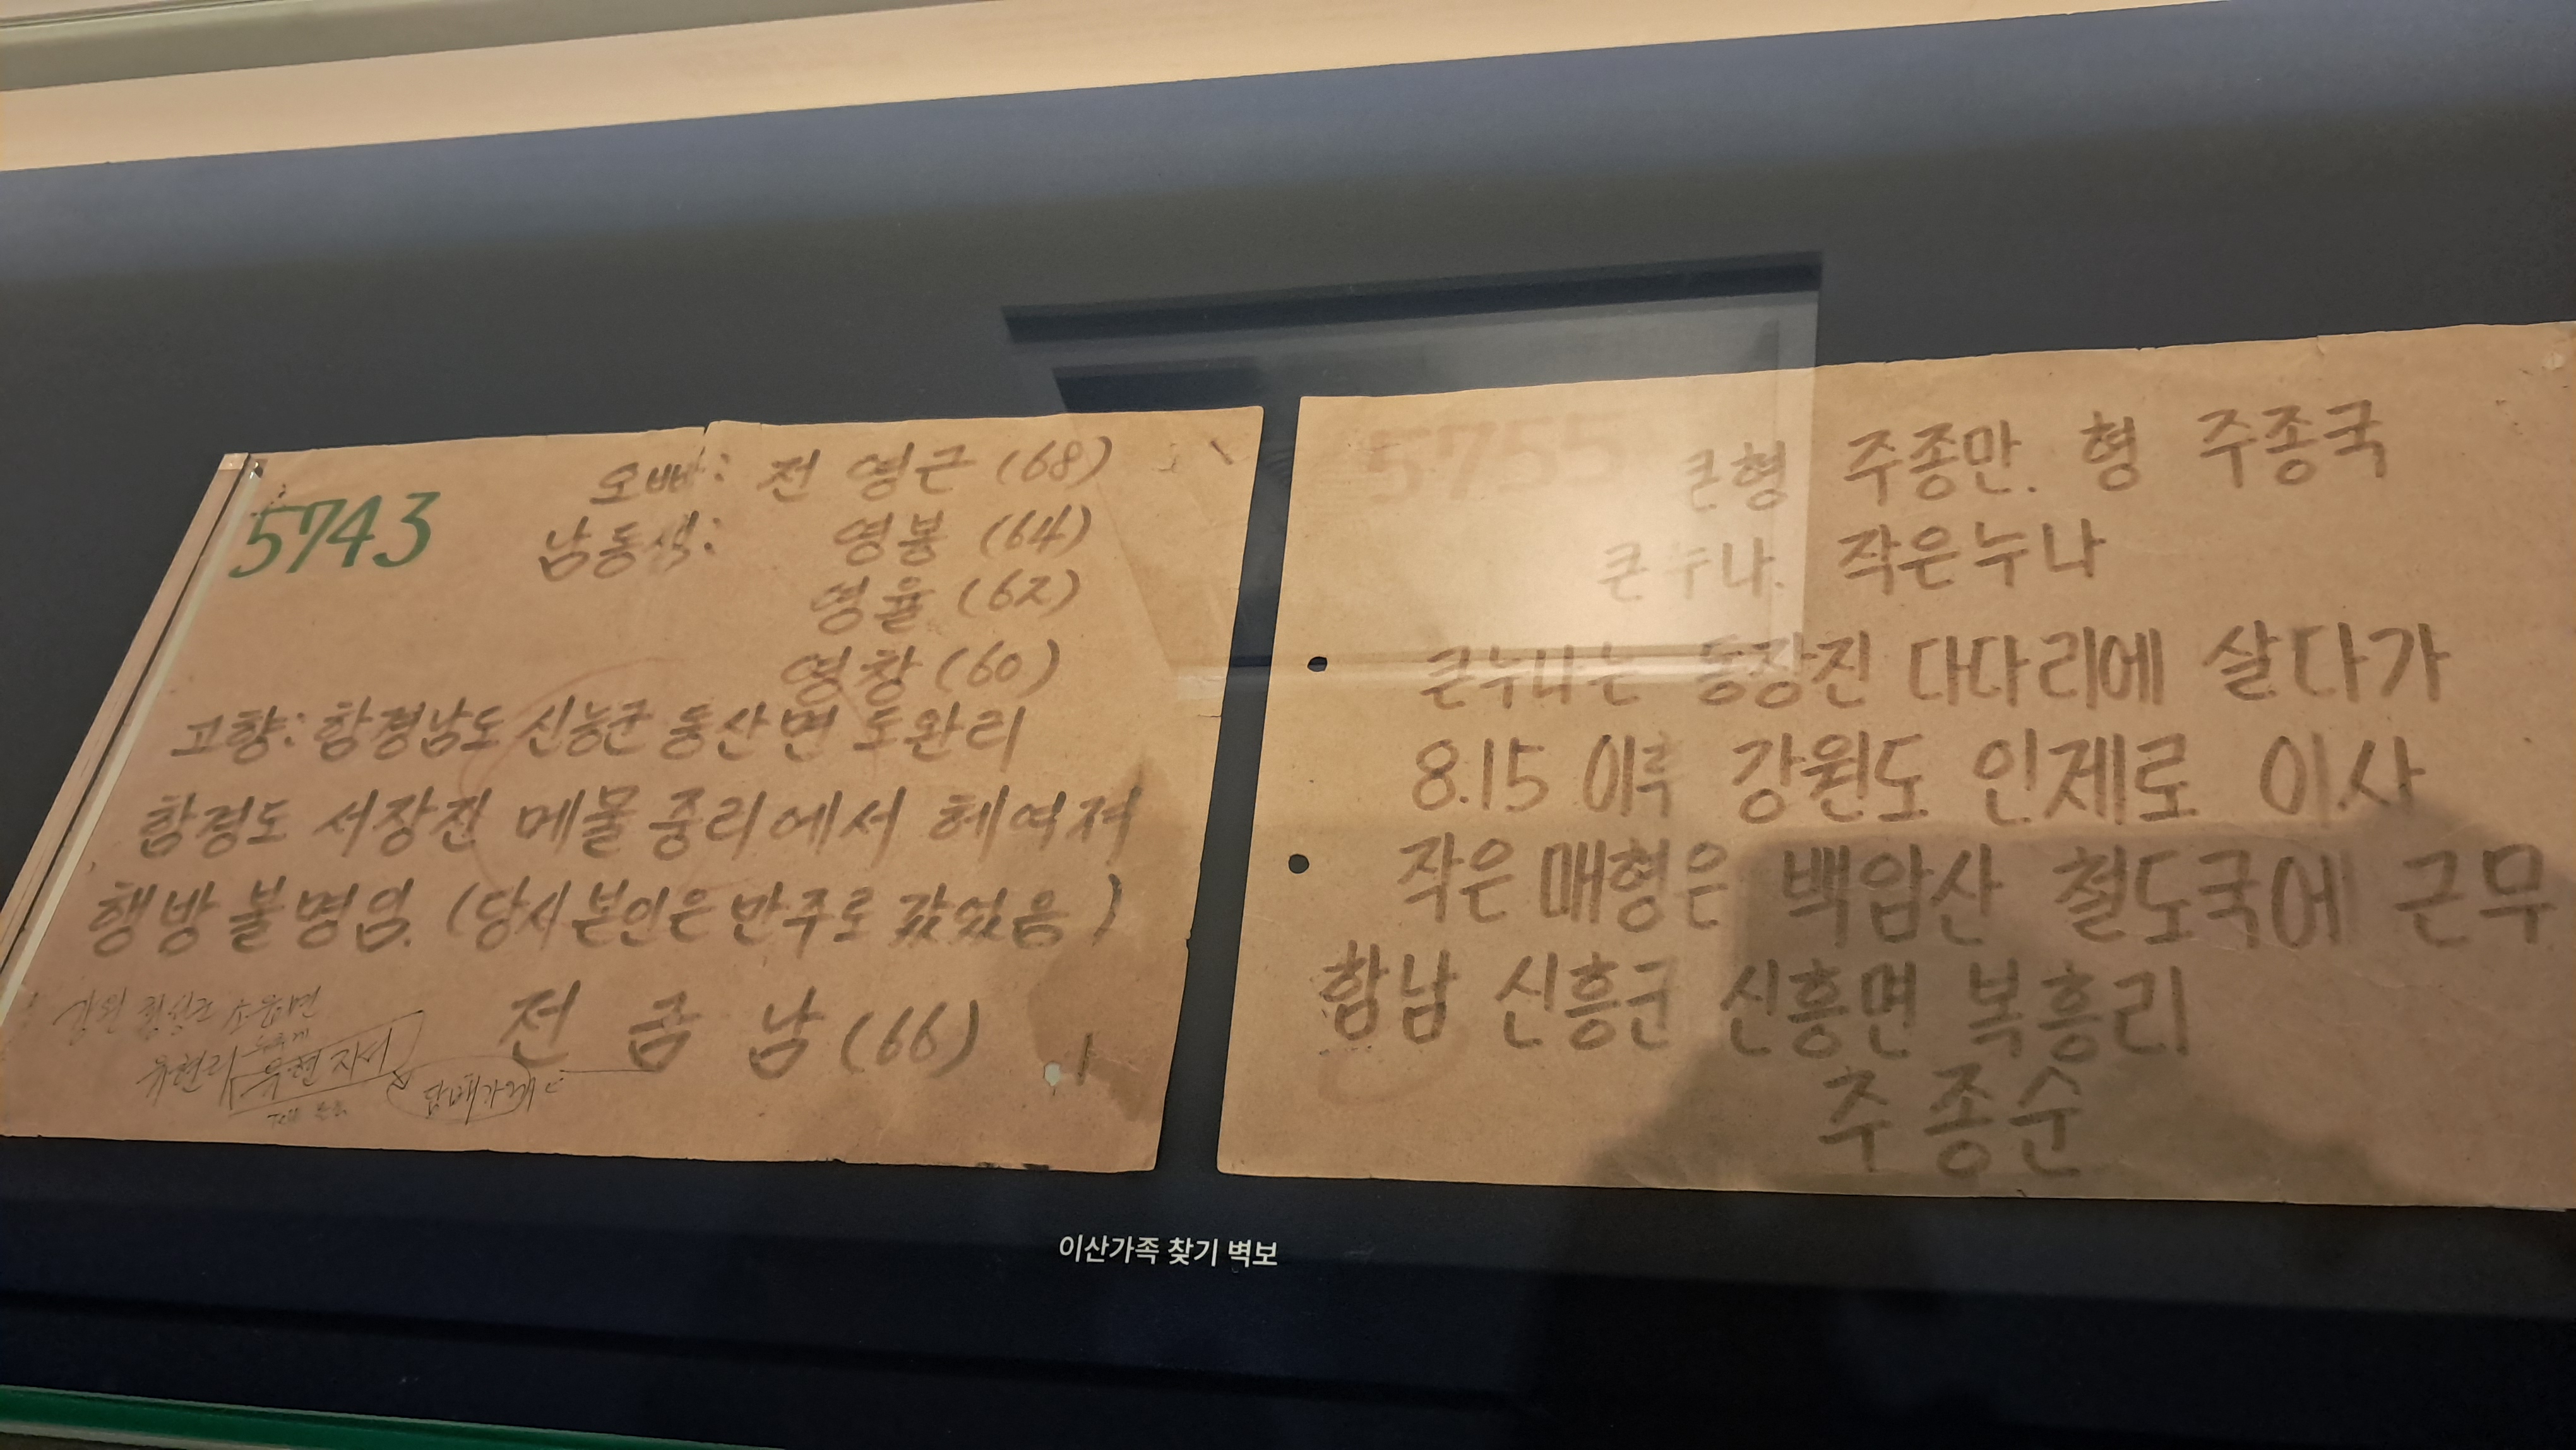 5743
오빠: 전 영근 (68)
남동생: 영봉 (64)
영율 (62)
영창 (60)
고향: 함경남도 신능군 동산면 도완리
함경도 서장진 메물 중리에서 헤여저
행방불명임. (당시 본인은 만주로 갔었음)
전 금 남 (66)
강원 횡성군
유현리
담배가게
5755
큰형 주종만. 형 주종국
큰누나. 작은누나
큰누나는 동장진 다다리에 살다가
8.15 이후 강원도 인제로 이사
작은 매형은 백암산 철도국에 근무
함남 신흥군 신흥면 복흥리
주 종 순
이산가족 찾기 벽보